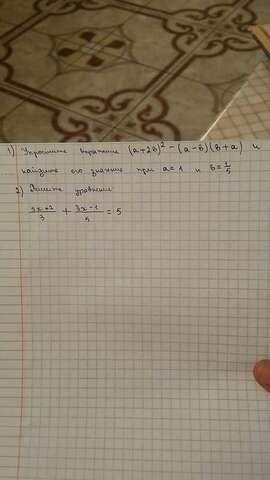 1) Упростите выражение (a+2b)² - (a-b)(b+a) и
найдите его значение при a=1 и b=1/5
2) Решите уравнение
/3 + (3x-1)/5 = 5